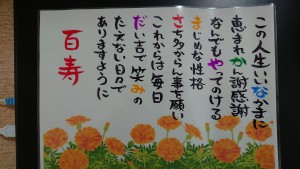 この人生いいなかまに
恵まれかん謝感謝
なんでもやってのける
まじめな性格
さち多からん事を願い
これからは毎日
だい吉で笑みの
たえない日々で
ありますように
百寿